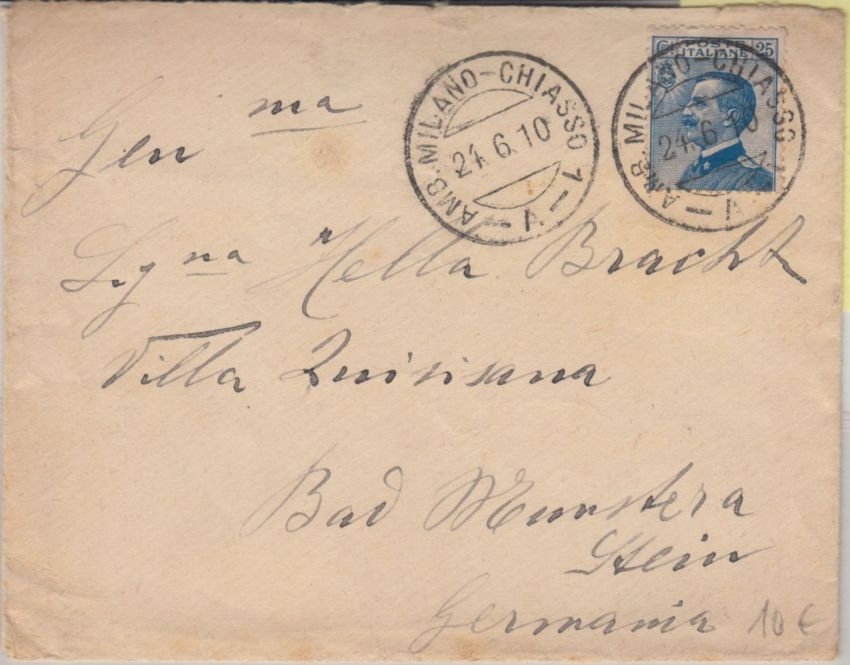 POSTE ITALIANE
25
AMB. MILANO-CHIASSO 1
24.6.10
A
AMB. MILANO-CHIASSO 1
24.6.10
A
Gen ma
Signa Hella Bracht
Villa Quisisana
Bad Munster a
Stein
Germania
10 €